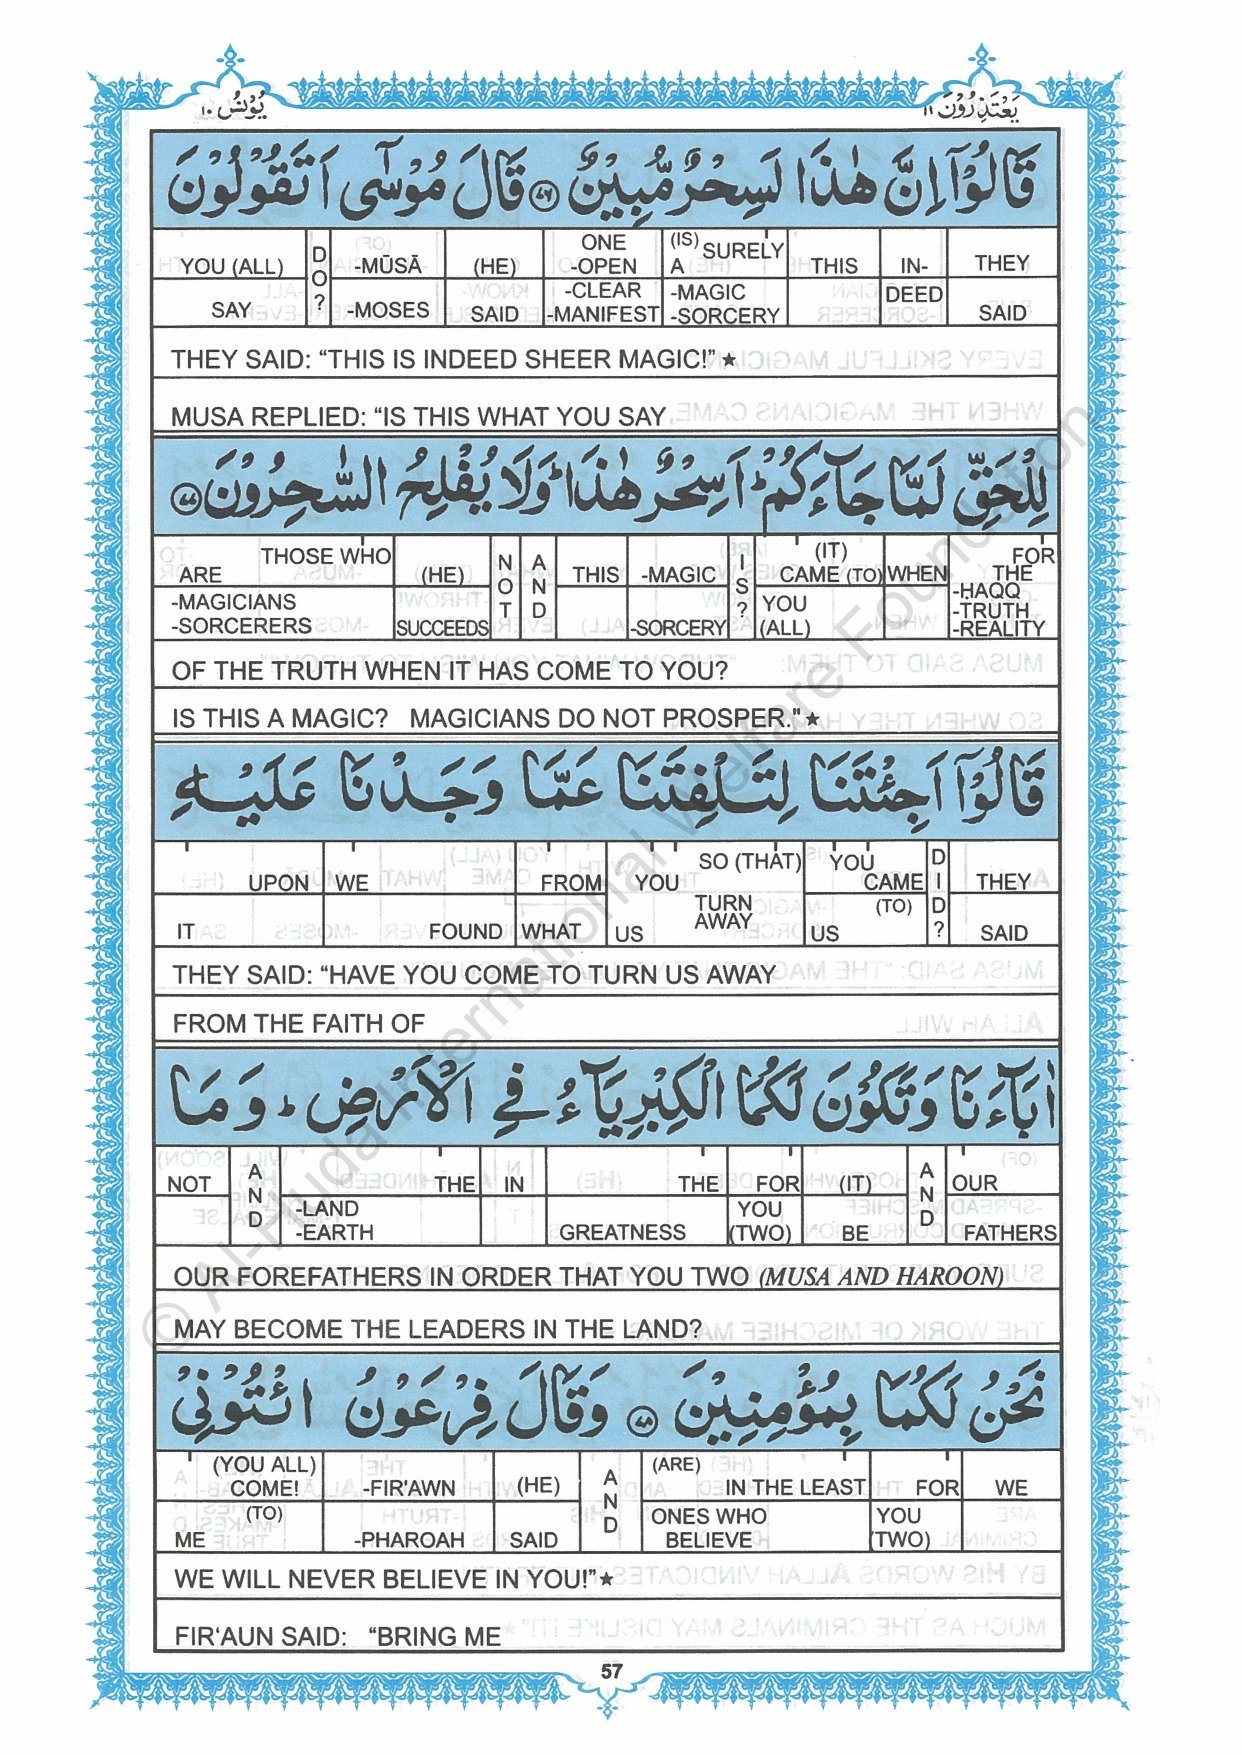 يَعْتَذِرُوْنَ ١١
يُوْنُسُ ١٠
قَالُوْۤا اِنَّ هٰذَا لَسِحْرٌ مُّبِيْنٌ ﴿٧٦﴾ قَالَ مُوْسٰۤى اَتَقُوْلُوْنَ
YOU (ALL) DO? -MŪSĀ (HE) ONE -OPEN (IS) SURELY A THIS IN- THEY
SAY -MOSES SAID -CLEAR -MANIFEST -MAGIC -SORCERY DEED SAID
THEY SAID: “THIS IS INDEED SHEER MAGIC!” ★
MUSA REPLIED: “IS THIS WHAT YOU SAY
لِلْحَقِّ لَمَّا جَآءَكُمْ ؕ اَسِحْرٌ هٰذَا ؕ وَلَا يُفْلِحُ السّٰحِرُوْنَ ﴿٧٧﴾
ARE THOSE WHO (HE) NOT AND THIS -MAGIC IS? (IT) CAME (TO) WHEN FOR THE
-MAGICIANS -SORCERERS SUCCEEDS -SORCERY YOU (ALL) -ḤAQQ -TRUTH -REALITY
OF THE TRUTH WHEN IT HAS COME TO YOU?
IS THIS A MAGIC? MAGICIANS DO NOT PROSPER." ★
قَالُوْۤا اَجِئْتَنَا لِتَلْفِتَنَا عَمَّا وَجَدْنَا عَلَيْهِ
UPON WE FROM YOU SO (THAT) YOU CAME DID? THEY
IT FOUND WHAT US TURN AWAY (TO) US SAID
THEY SAID: “HAVE YOU COME TO TURN US AWAY
FROM THE FAITH OF
اٰبَآءَنَا وَتَكُوْنَ لَكُمَا الْكِبْرِيَآءُ فِي الْاَرْضِ ؕ وَمَا
NOT AND THE IN THE FOR (IT) AND OUR
-LAND -EARTH GREATNESS YOU (TWO) BE FATHERS
OUR FOREFATHERS IN ORDER THAT YOU TWO (MUSA AND HAROON)
MAY BECOME THE LEADERS IN THE LAND?
نَحْنُ لَكُمَا بِمُؤْمِنِيْنَ ﴿٧٨﴾ وَقَالَ فِرْعَوْنُ ائْتُوْنِيْ
(YOU ALL) COME! -FIR'AWN (HE) AND (ARE) IN THE LEAST FOR WE
(TO) ME -PHAROAH SAID ONES WHO BELIEVE YOU (TWO)
WE WILL NEVER BELIEVE IN YOU!” ★
FIR‘AUN SAID: “BRING ME
57
© Al-Huda International Welfare Foundation